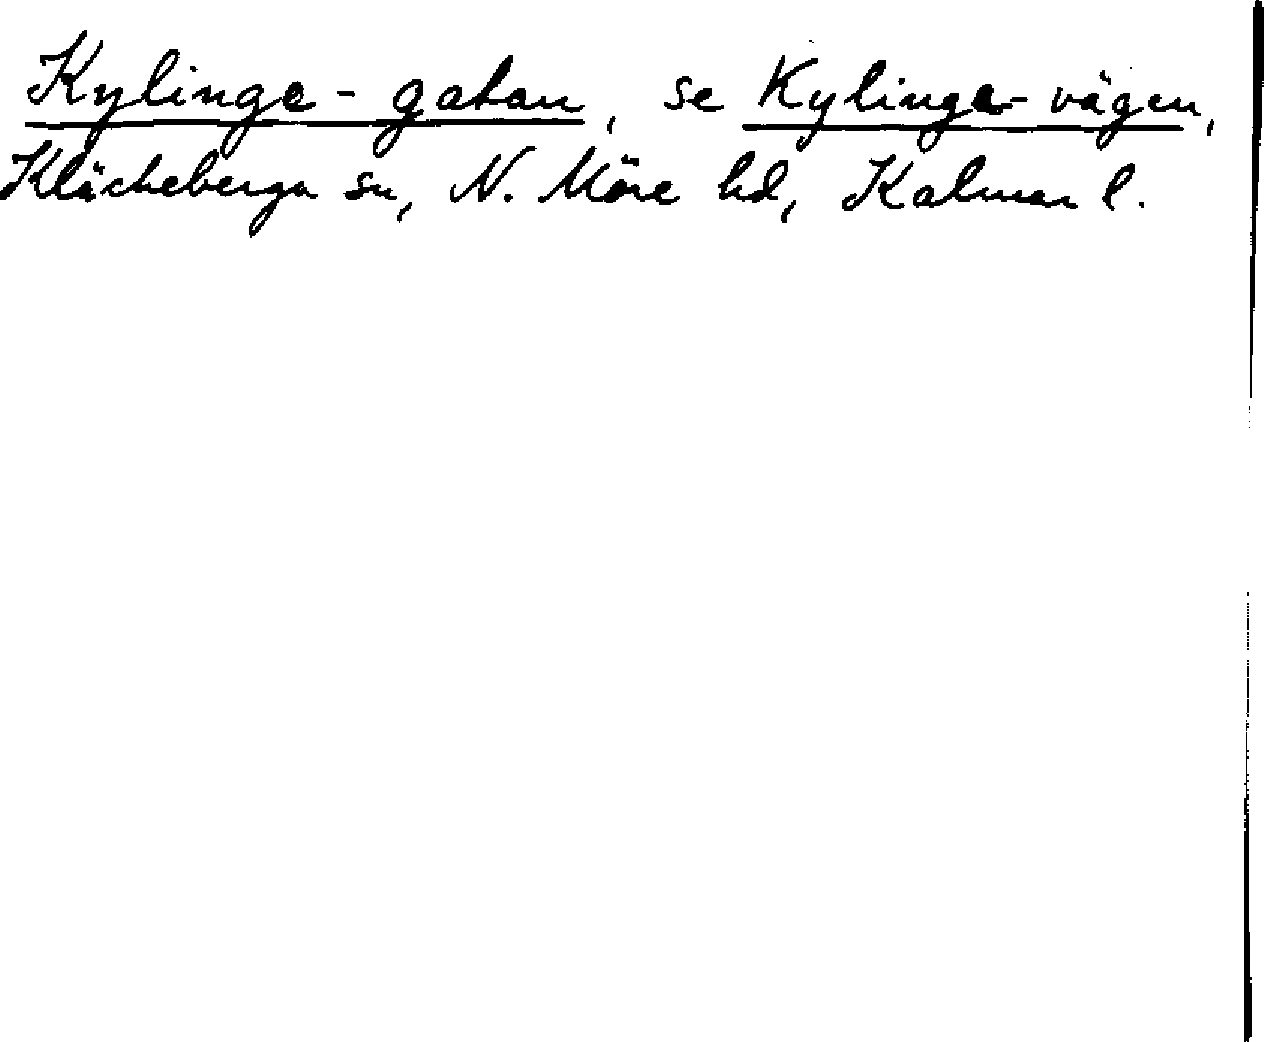 Kylinge-gatan, se Kylinge-vägen,
Kläckeberga sn, N. Möre hd, Kalmar l.